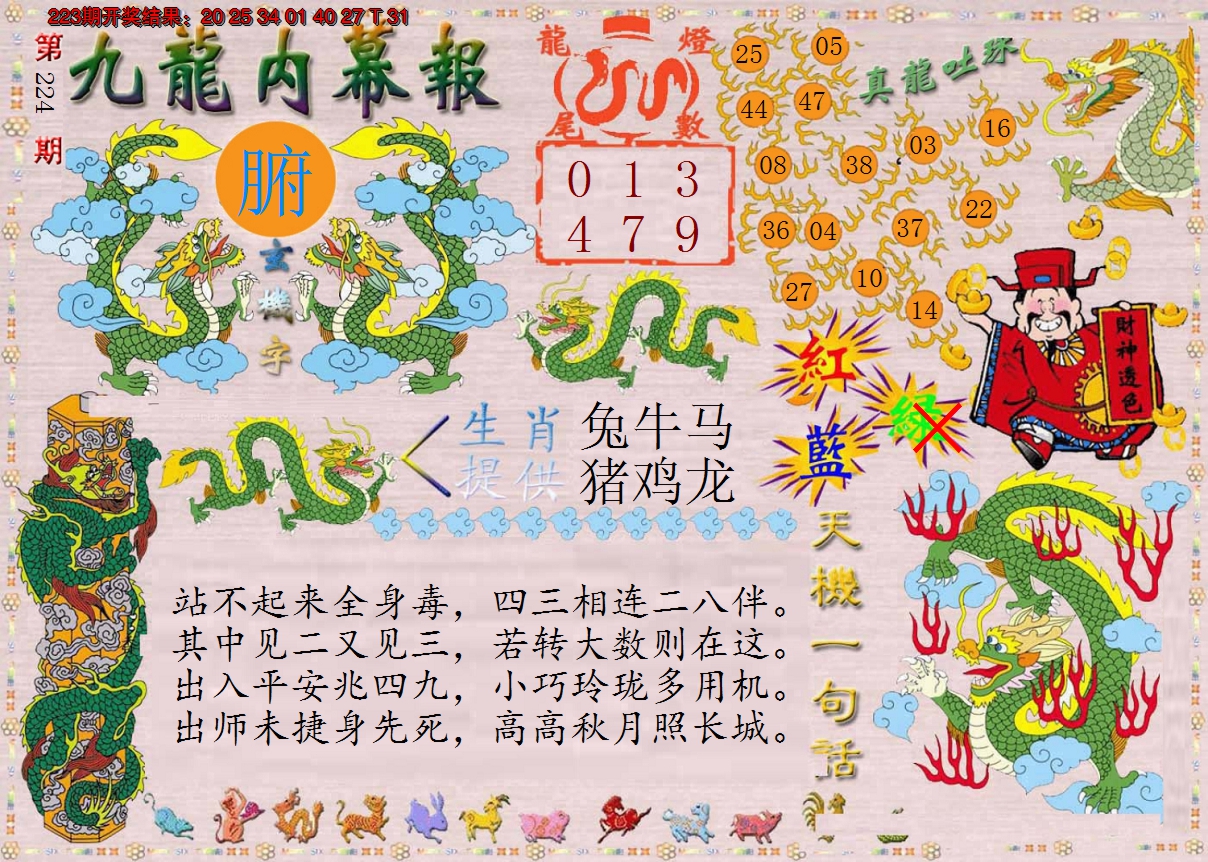 223期开奖结果：20 25 34 01 40 27 T 31
第224期
九龍内幕報
腑
玄機字
龍燈
尾數
0 1 3
4 7 9
真龍吐珠
25 05
44 47
08 38 03 16
36 04 37 22
27 10 14
財神透色
紅
綠
藍
生肖 兔牛马
提供 猪鸡龙
天機一句话
站不起来全身毒，四三相连二八伴。
其中见二又见三，若转大数则在这。
出入平安兆四九，小巧玲珑多用机。
出师未捷身先死，高高秋月照长城。